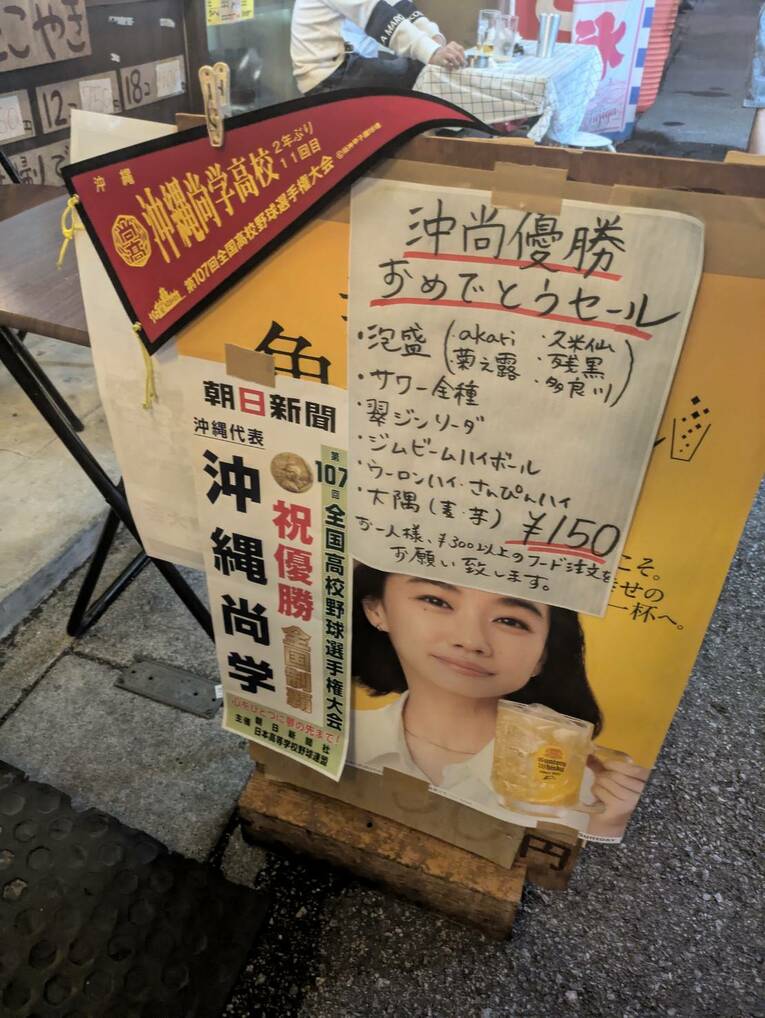 こやき
12コ
18コ
氷
沖縄
沖縄尚学高校
2年ぶり
11回目
第107回全国高校野球選手権大会
尚高
沖尚優勝
おめでとうセール
・泡盛(akari ・久米仙
・菊之露 ・残黒
・多良川)
・サワー全種
・翠ジンソーダ
・ジムビームハイボール
・ウーロンハイ・さんぴんハイ
・大隅(麦・芋) ¥150
お一人様、¥300以上のフード注文を
お願い致します。
角
朝日新聞
沖縄代表
沖縄尚学
祝優勝 全国制覇
第107回全国高校野球選手権大会
心をひとつに夢の先まで!
主催 朝日新聞社
日本高等学校野球連盟
こそ。
せの
一杯へ。
Suntory
Whisky
SUNTORY
円